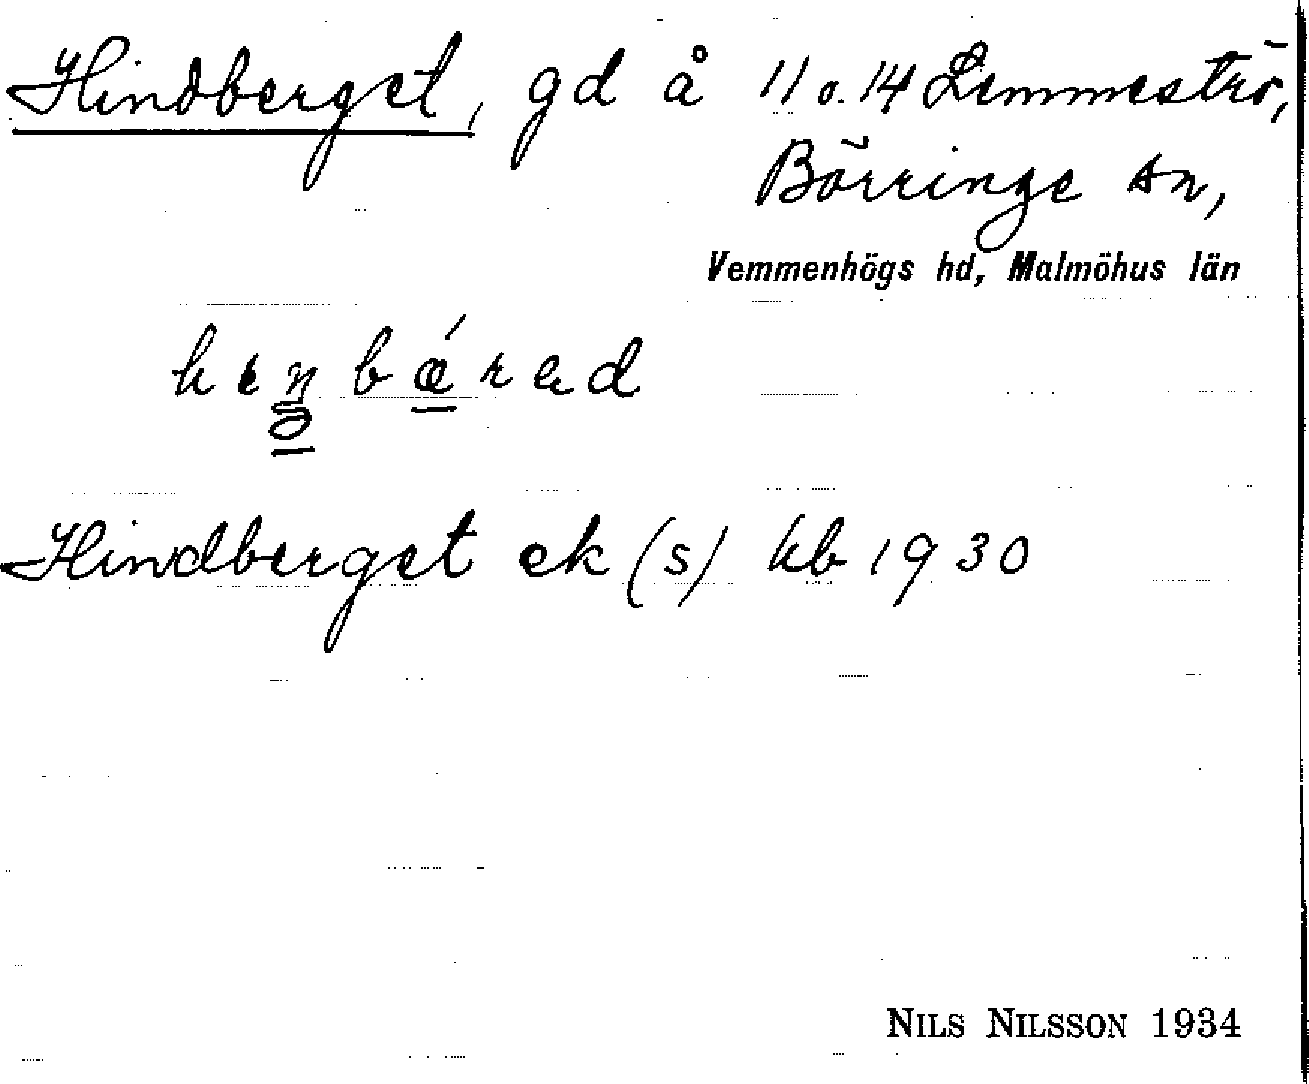 Hindberget, gd å 11 o. 14 Lemmeströ,
Börringe sn,
Vemmenhögs hd, Malmöhus län
Hindberget ek (s) kb 1930
NILS NILSSON 1934